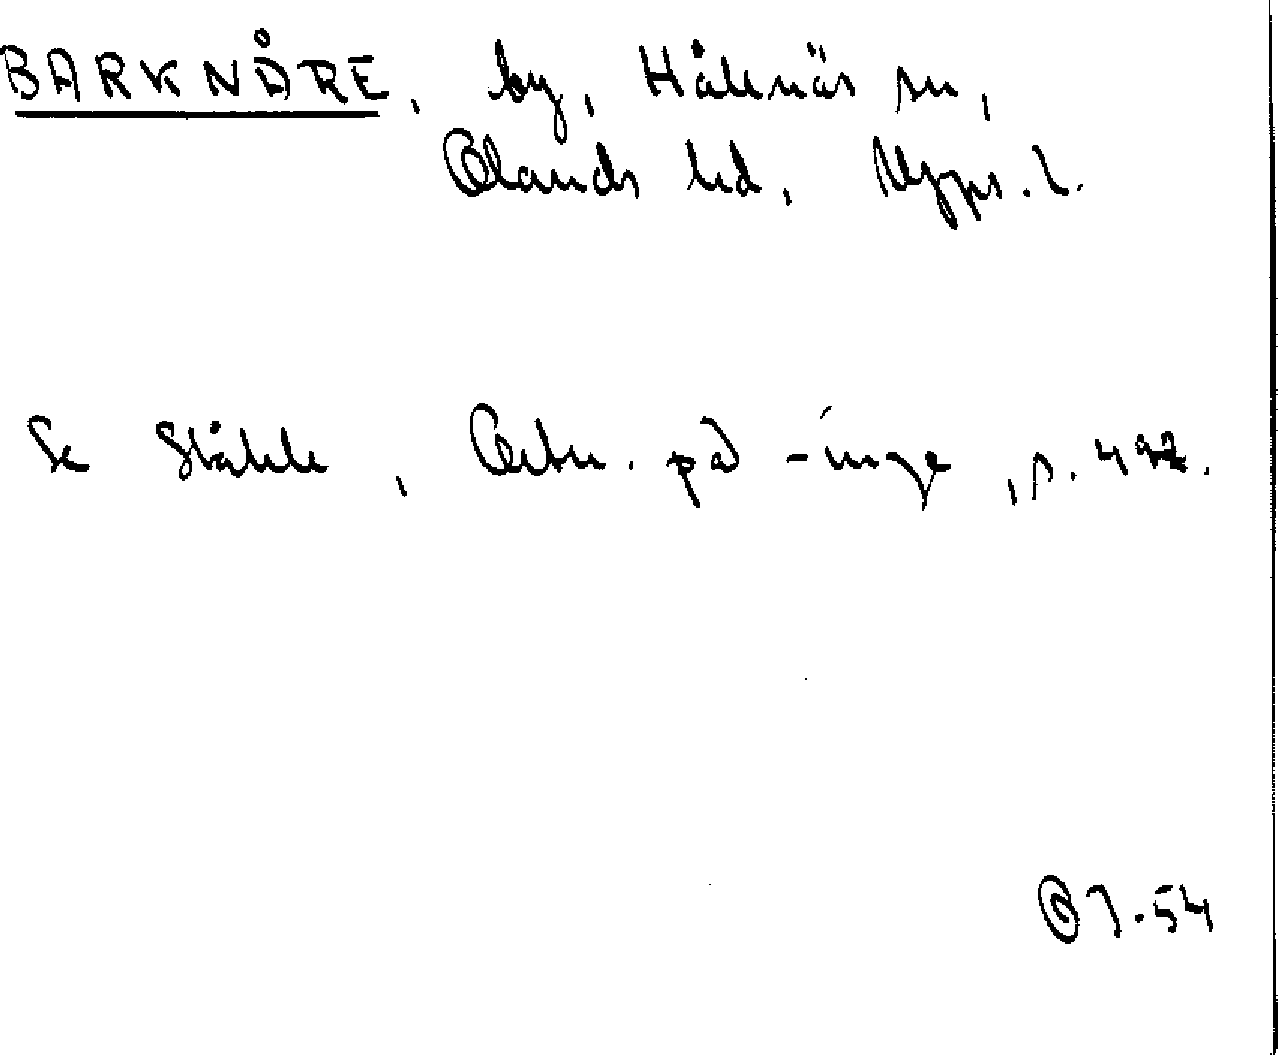 BARKNÅRE, by, Hållnäs sn,
Olands hd, Upps. l.
Se Ståhle, Ortn. på -inge, s. 492.
OJ.54